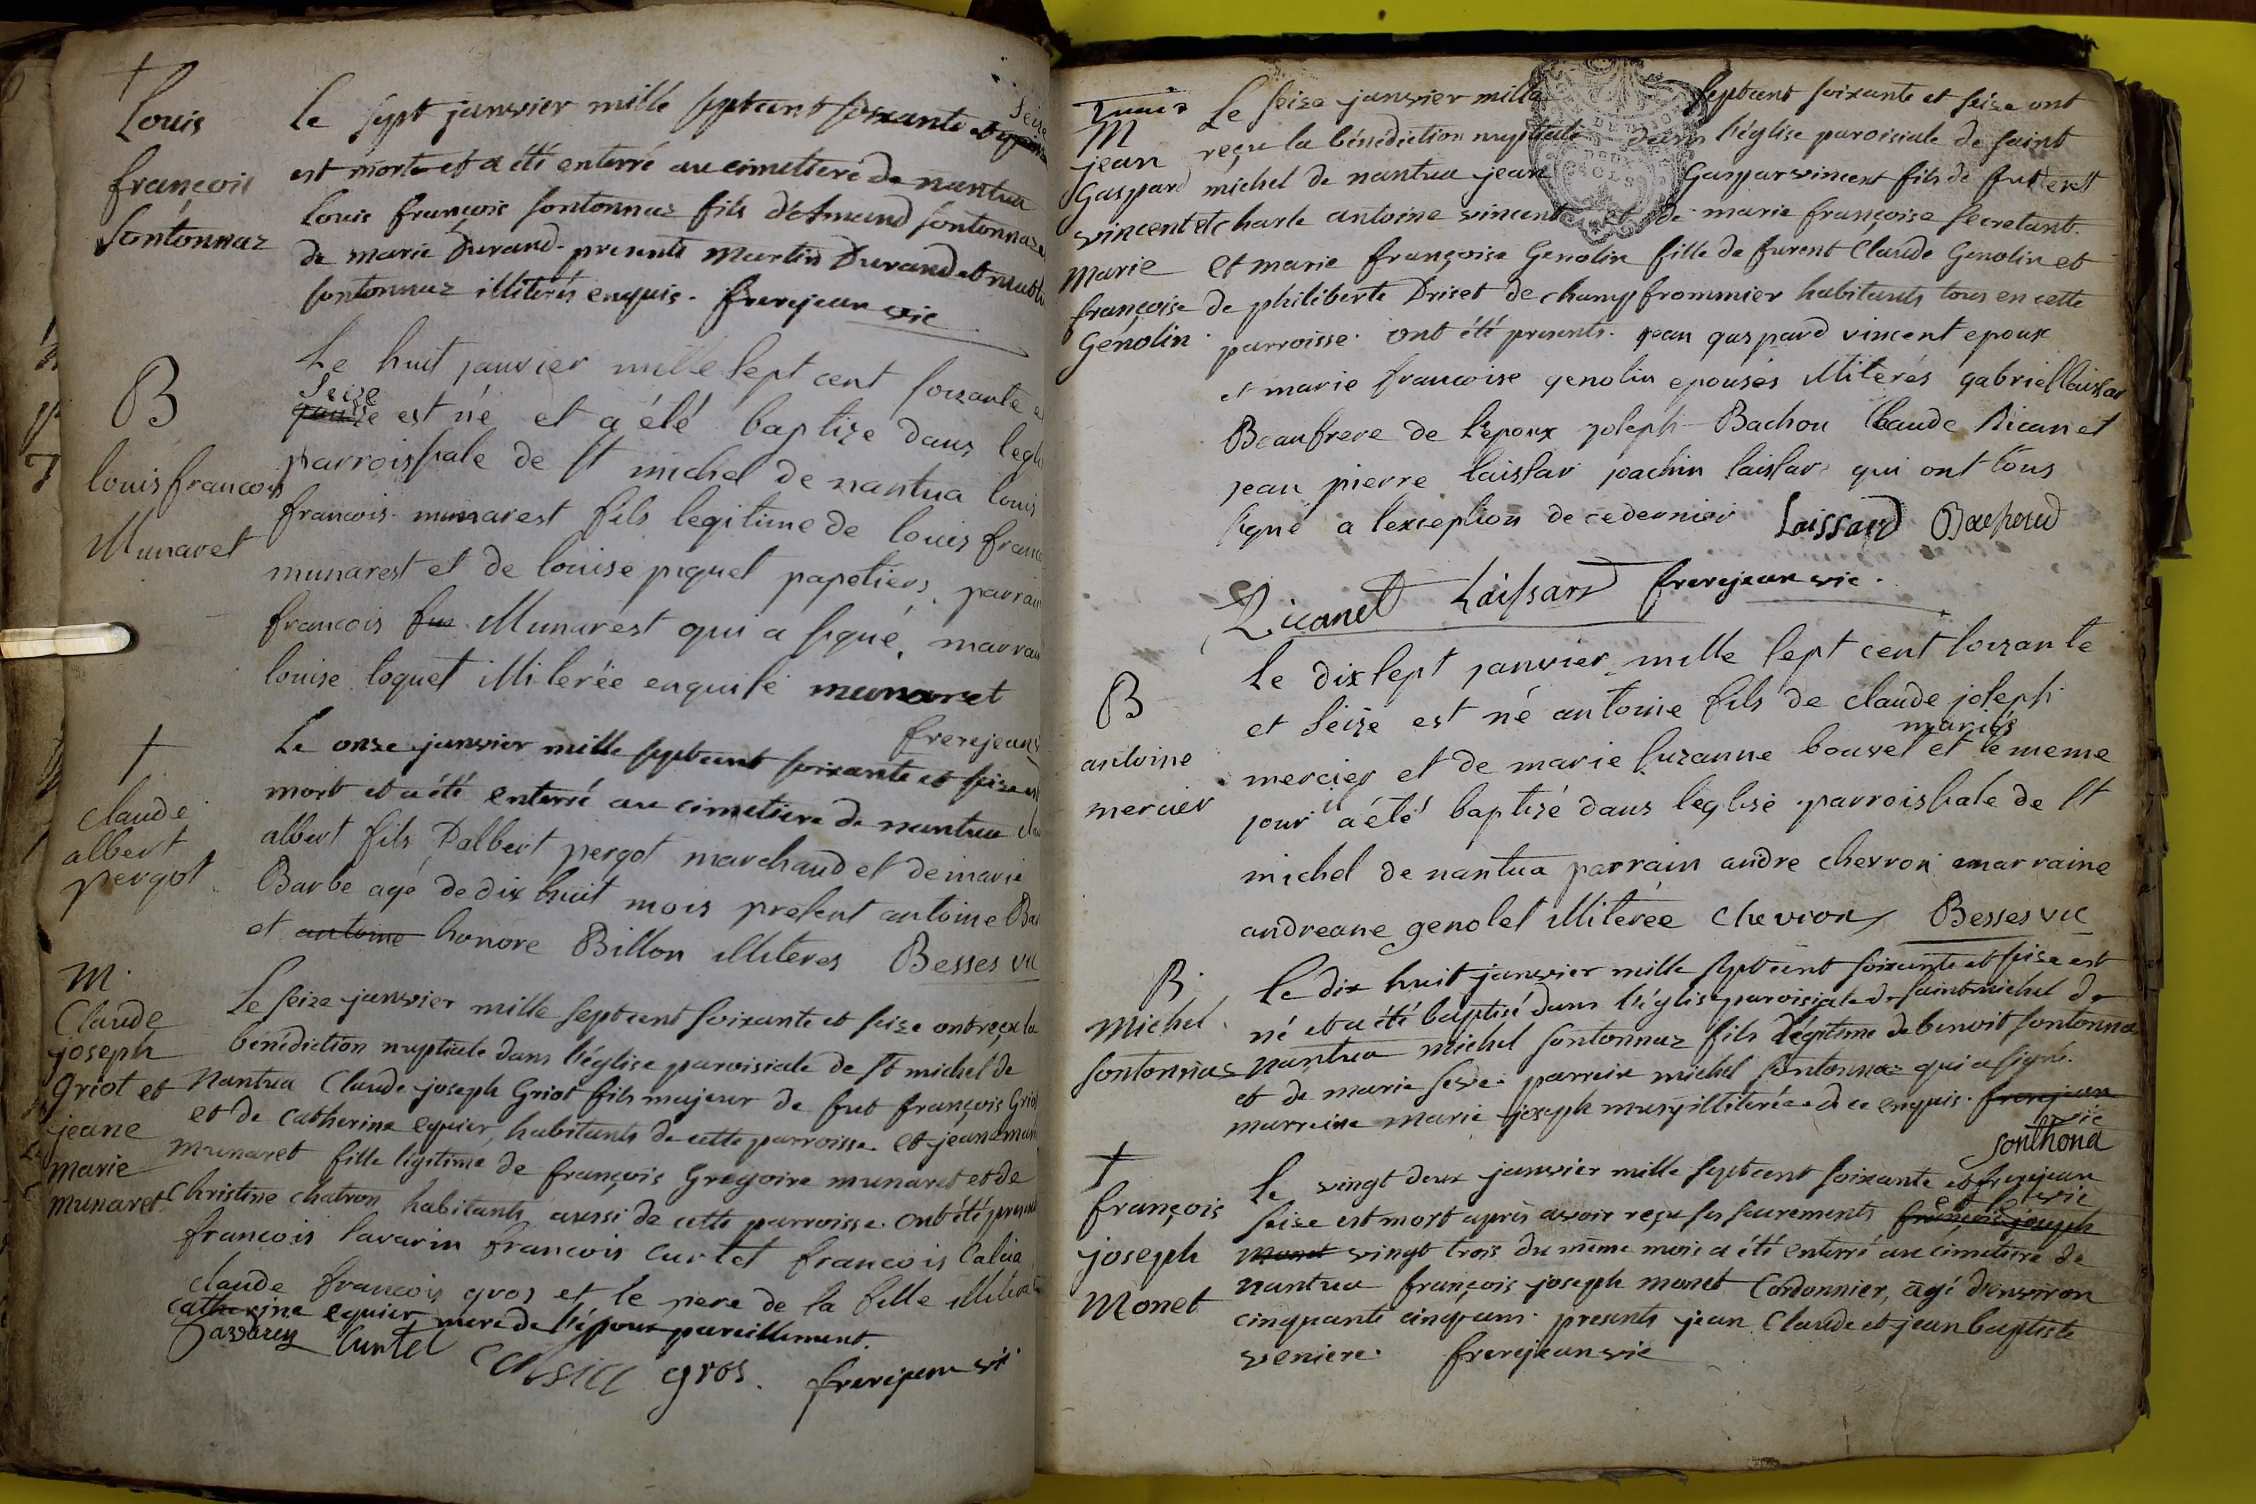 +
Louis
françois
sontonnaz
Le sept janvier mille septcent soixante et seize
est morte et a été enterré au cimetiere de nantua
Louis françois sontonnaz fils d'Amand sontonnaz
de marie Durand. presents martin Durand et
sontonnaz illiterés enquis. frerejean vic
B
louis francois
Munaret
Le huit janvier mille sept cent soixante et
Seize
quinze est né et a été baptize dans legli
parroissiale de st michel de nantua louis
francois munarest fils legitime de louis franc
munarest et de louise piquet papetiers, parrain
francois fra Munarest qui a signé, marrain
louise loquet illiterée enquise munaret
frerejean
+
claude
albert
pergot
Le onze janvier mille septcent soixante et seize est
mort et a été enterré au cimetiere de nantua
albert fils D'albert pergot marchand et de marie
Barbe agé de dix huit mois present antoine
et antoine honore Billon illiteres Besses vic
M.
Claude
joseph
Griot et
jeane
marie
munaret.
Le seize janvier mille septcent soixante et seize ont reçu la
bénédiction nuptiale dans l'église paroisiale de st michel de
Nantua Claude joseph Griot fils majeur de fut françois Griot
et de catherine equier, habitants de cette parroisse. et jeane
munaret fille légitime de françois Gregoire munaret et de
Christine chatron habitants aussi de cette parroisse. ont été
francois Savarin francois curtet francois
claude francois gros et le pere de la fille
catherine equier mere de l'époux pareillement.
Savarin Curtet gros. frerejean vic
M
jean
Gaspard
vincent et
marie
françoise
Génolin
Le seize janvier mille septcent soixante et seize ont
reçu la bénédiction nuptiale dans l'église paroisiale de saint
michel de nantua jean Gaspar vincent fils de fut
charle antoine vincent et de marie françoise secretant.
et marie françoise Genolin fille de furent Claude Genolin et
de philiberte Driset de champfrommier habitants tous en cette
parroisse. ont été presents. jean gaspard vincent epoux
et marie francoise genolin epouses illiterés gabriel laissar
Beaufrere de l'epoux joseph Bachou Claude Ricanet
jean pierre laissar joachin laissar qui ont tous
signé a lexception de ce dernier Laissard Bachoud
Ricanet Laissard frerejean vic.
B
antoine
mercier
Le dix sept janvier mille sept cent soizante
et Seize est né antoine fils de claude joseph
mariés
mercier et de marie suzanne bouvet et le meme
jour il a été baptizé dans leglise parroissiale de st
michel de nantua parrain andre chevron marraine
andreane genolet illiterée chevron Besses vic
B.
michel
sontonnas
Le dix huit janvier mille septcent soixante et seize est
né et a été baptisé dans l'église paroisiale de saint michel de
nantua michel sontonnaz fils légitime de benoit sontonnaz
et de marie seve. parrein michel sontonnaz qui a signé.
marreine marie joseph musy illiterée de ce enquis. frerejean
vic
sonthona
frerejean
vic
+
françois
joseph
Monet
Le vingt deux janvier mille septcent soixante et
seize est mort après avoir reçu ses sacrements françois joseph
Monet vingt trois du même mois a été enterré au cimetiere de
nantua françois joseph monet Cordonnier, agé d'environ
cinquante cinq ans. presents jean Claude et jean baptiste
veniere. frerejean vic